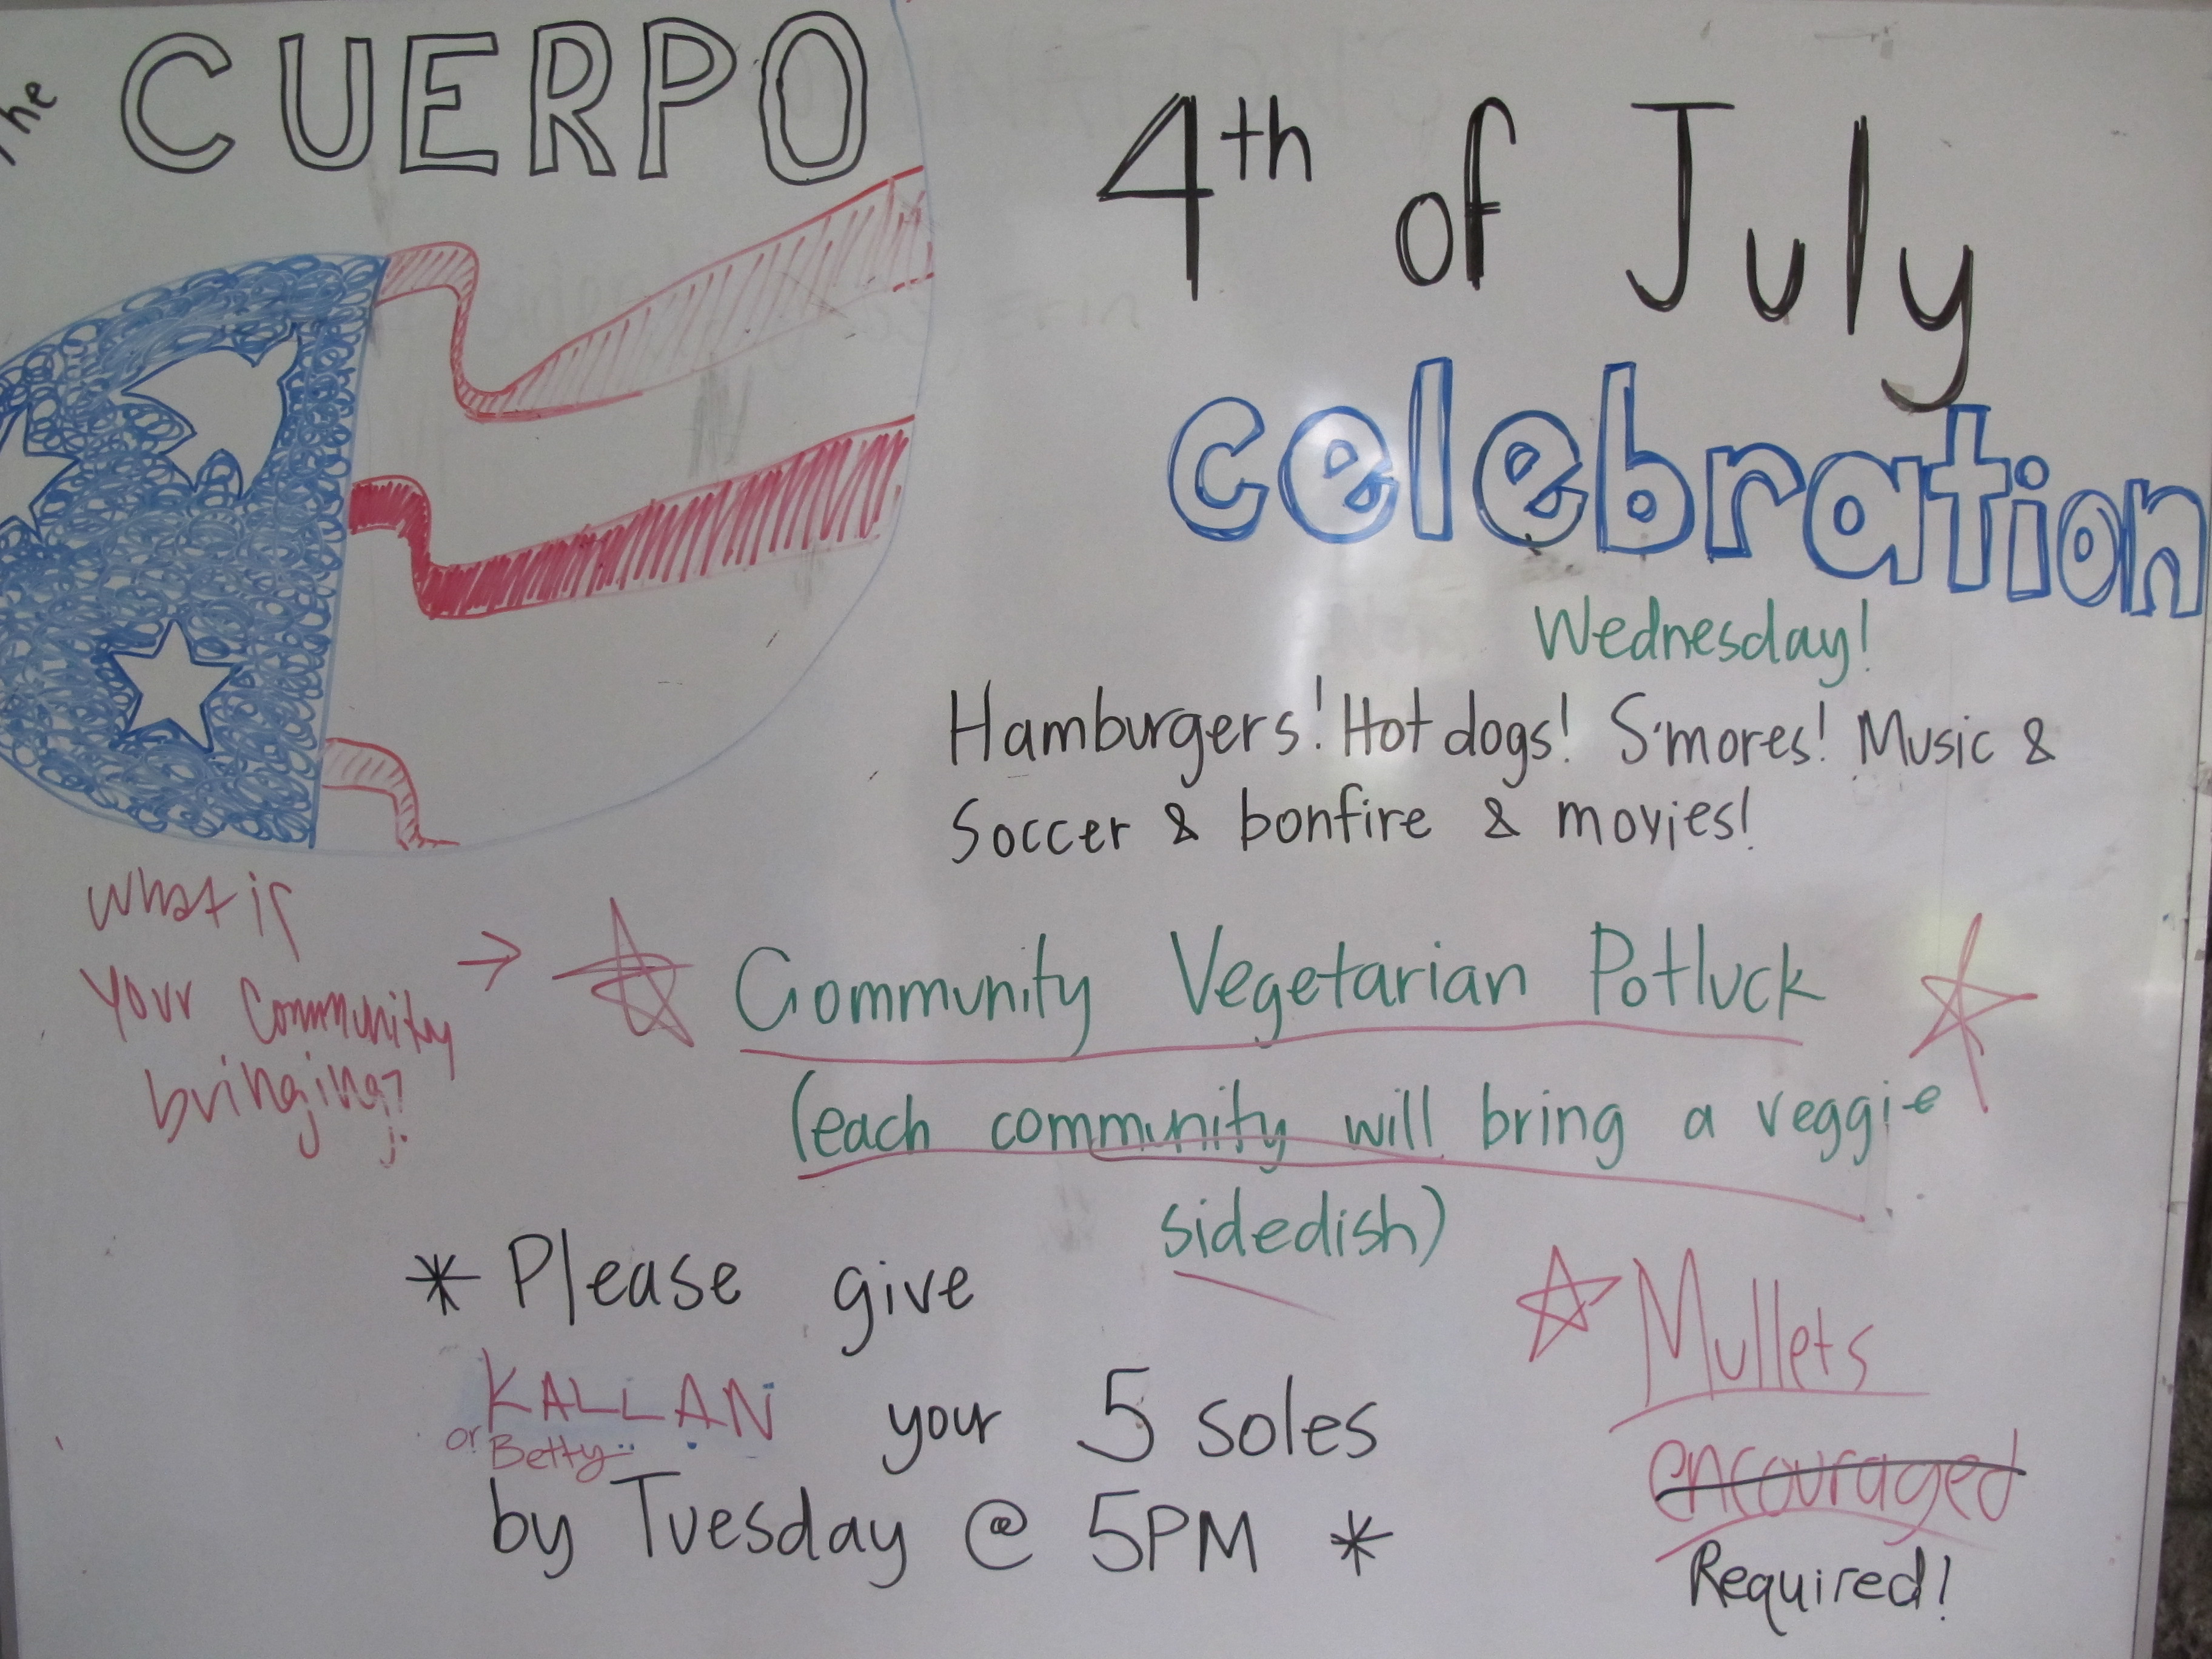 The CUERPO
4th of July
celebration
Wednesday!
Hamburgers! Hot dogs! S'mores! Music &
Soccer & bonfire & movies!
What is
your community
bringing?
→ Community Vegetarian Potluck
(each community will bring a veggie
sidedish)
* Please give
KALLAN your 5 soles
or Betty
by Tuesday @ 5PM *
Mullets
encouraged
Required!